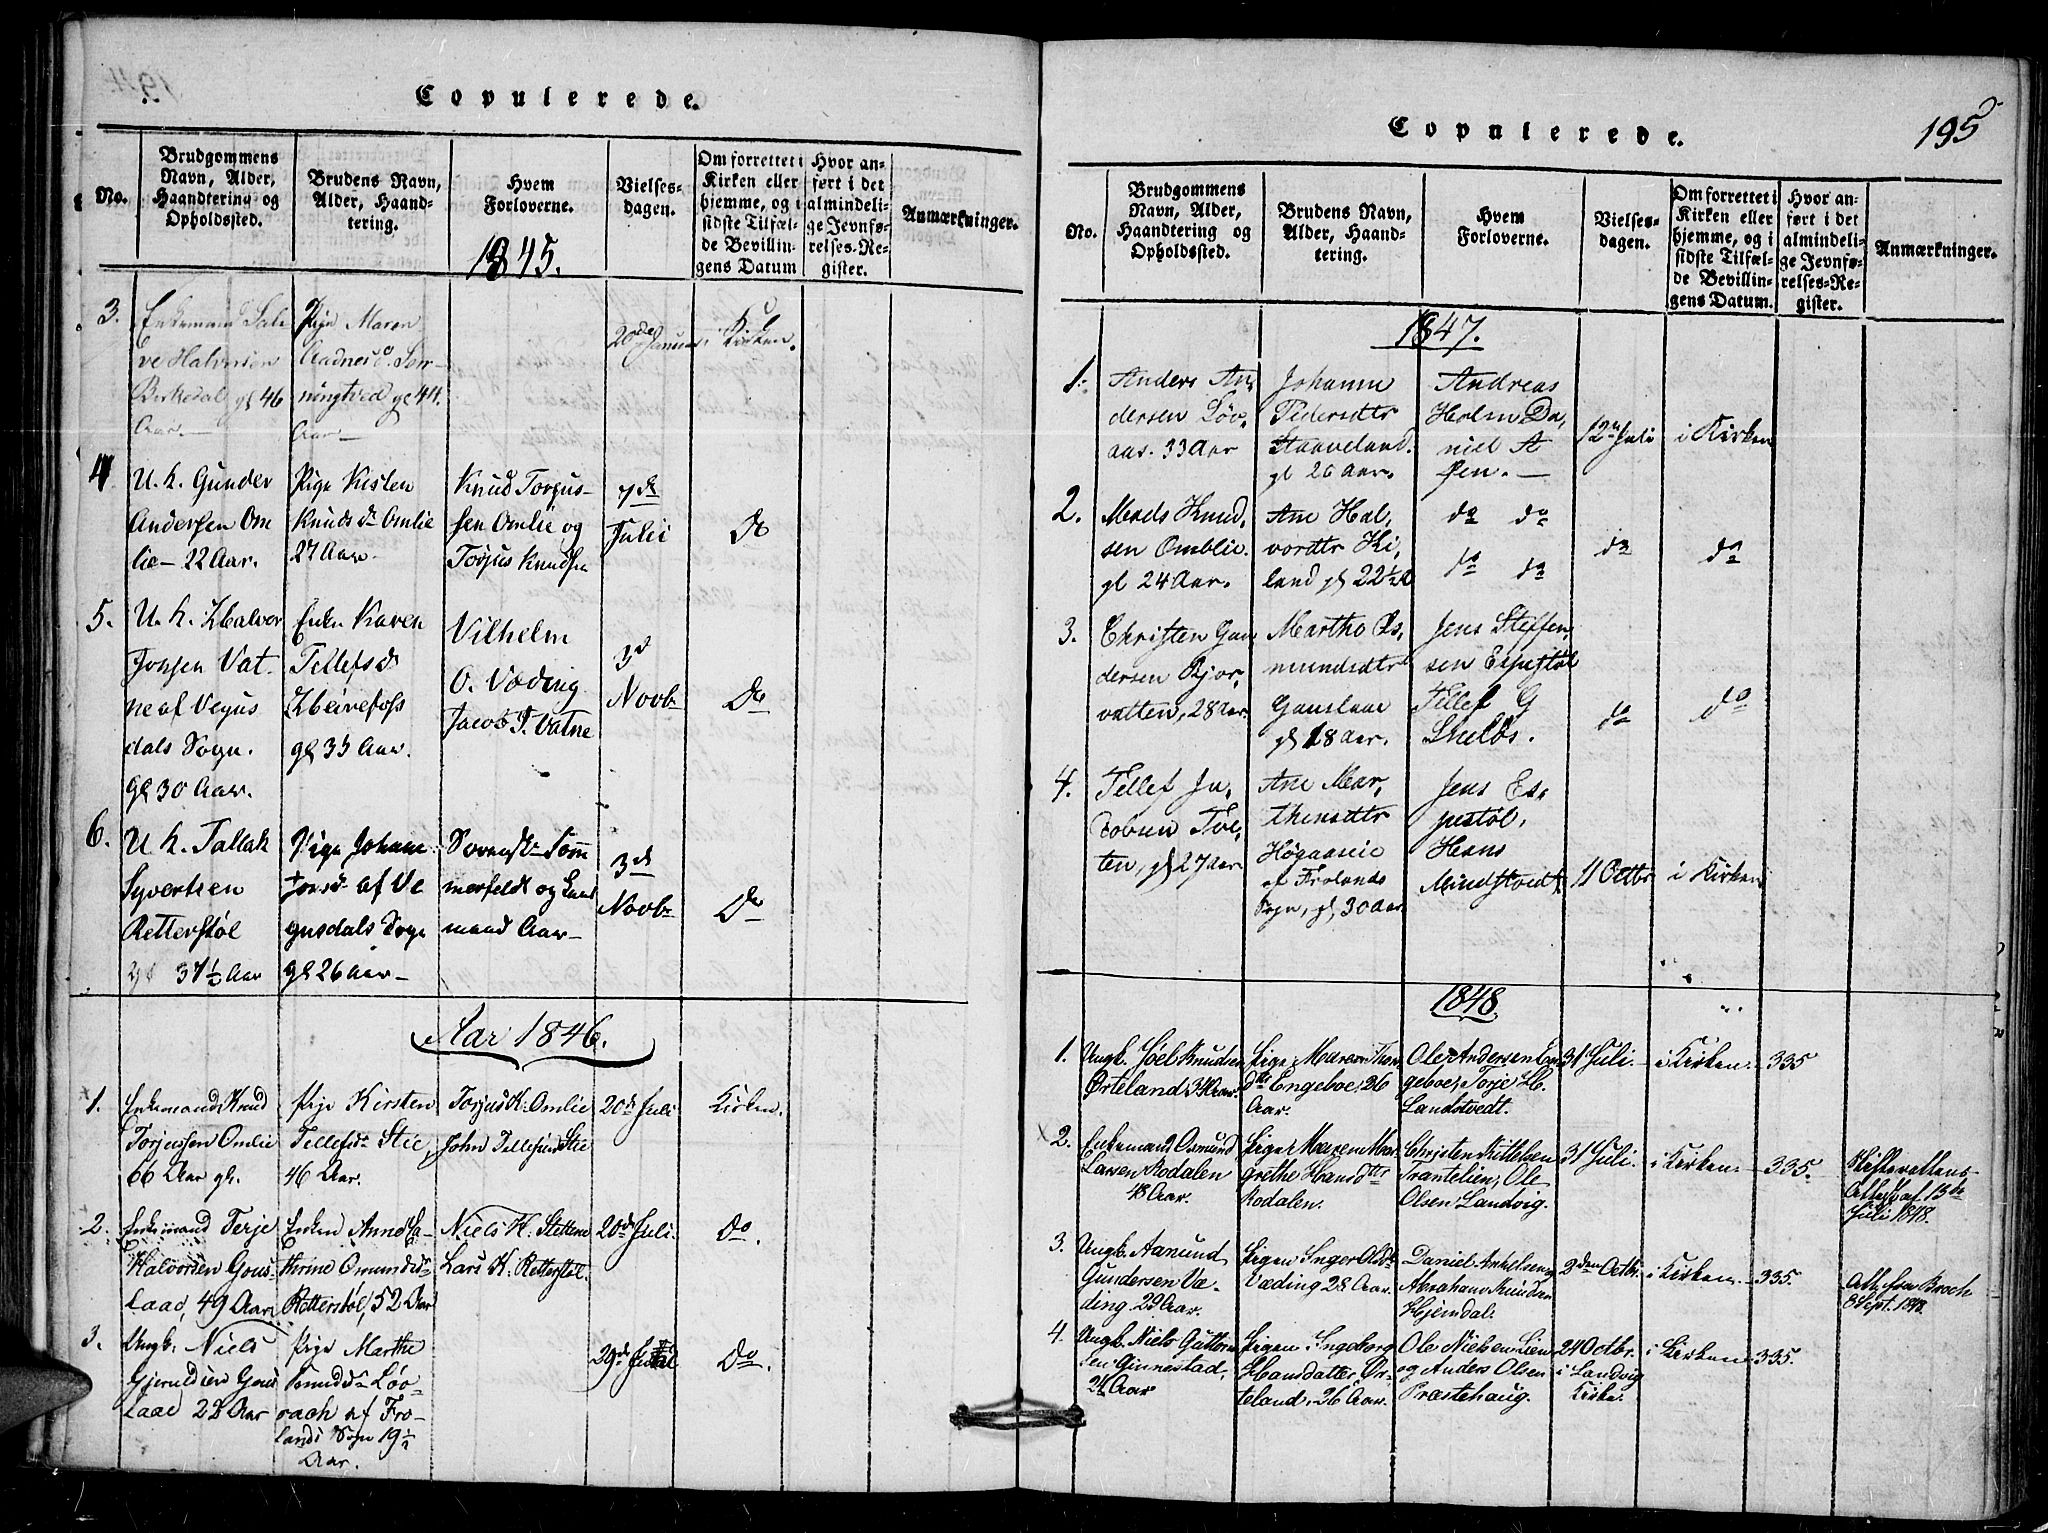 Copulerede.
No.
Brudgommens
Navn, Alder,
Haandtering og
Opholdssted.
Brudens Navn,
Alder, Haand-
tering.
Hvem
Forloverne.
Vielses-
dagen.
Om forrettet i
Kirken eller
hjemme, og i
sidste Tilfæl-
de Bevillin-
gens Datum
Hvor an-
ført i det
almindeli-
ge Jevnfø-
relses-Re-
gister.
Anmærkninger.
1845.
3.
Enkemand Sale
ve Halvorsen
Birkedal gl 46
Aar.
Pige Maren
Aadnesd.
ningtved gl 44.
Aar
20de Januar
i Kirken.
4
U. K. Gunder
Andersen Om
lie - 22 Aar.
Pige Kisten
Knudsdr Omlie
27 Aar.
Knud Torgus-
sen Omlie og
Torjus Knudsen
7de
Julii
Do
5.
U. K. Halvor
Jonsen Vat-
ne af Vegus
dals Sogn.
gl 30 Aar.
Enke Karen
Tellefsd
Heirefoss
gl 35 Aar.
Vilhelm
O. Væding
Jacob J. Vatne
3d
Novbr
Do
6.
U. K. Tallak
Syvertsen
Retterstøl
gl 37½ Aar
Pige Johane
Jonsdr af Ve
gusdals Sogn
gl 26 Aar
Sorensk. Somm
merfeldt og Lens
mand Aas
3d
Novbr
Do
Aar 1846.
1.
Enkemand Knud
Torjussen Omlie
66 Aar gl.
Pige Kirsten
Tellefsdr Stie,
46 Aar.
Torjus K. Omlie
John Tellefsen Stie
20de Juli
Kirken.
2.
Enkemand Terje
Halvorsen Gous-
laad, 49 Aar
Enken Anne Ca-
thrine Omundsdr
Retterstøl, 52 Aar
Niels H. Stettene
Lars K. Retterstøl.
20de Juli.
Do.
3.
Ungk. Niels
Gjeruldsen Gous
laad 22 Aar
Pige Marthe
Knudsdr Løv-
rach af Fro-
lands Sogn 19½
Aar.
29de
Do.
Copulerede.
195
No.
Brudgommens
Navn, Alder,
Haandtering og
Opholdssted.
Brudens Navn,
Alder, Haand-
tering.
Hvem
Forloverne.
Vielses-
dagen.
Om forrettet i
Kirken eller
hjemme, og i
sidste Tilfæl-
de Bevillin-
gens Datum.
Hvor an-
ført i det
almindeli-
ge Jevnfø-
relses-Re-
gister.
Anmærkninger.
1847.
1.
Anders An,
dersen Løv,
aas. 33 Aar
Johanne
Pedersdtr
Haaveland.
gl 26 Aar.
Andreas
Holm Da,
niel A
sen.
12te Juli
i Kirken
2.
Mads Knud,
sen Omblie.
gl 24 Aar.
Ane Hal,
vordtr Ki,
land gl 22½ A
do do
do do
do
do
3.
Christen Gun
dersen Bjor,
vatten, 28 Aar.
Martho As,
mundsdtr
Gauslaae
gl 18 Aar.
Jens Steffen,
sen Espestøl
Tellef G
do
do
4.
Tellef Ja,
cobsen Tve,
ten, gl 27 Aar
Ane Mar,
thinsdtr
Høgaasnie
af Frolands
Sogn, gl 30 Aar.
Jens Es,
pestøl,
Hans
Mindstvedt,
11 Octbr
i Kirken
1848.
1.
Ungk. Joel Knudsen
Ørteland 34 Aar.
Pige Maren
dtr Engeboe, 26
Aar.
Ole Andersen En
geboe, Torje H.
Landstvedt.
31 Juli.
i Kirken.
335
2.
Enkemand Osmund
Larsen Rodalen
48 Aar.
Pige Maren Mar
grethe Hansdtr
Rodalen.
Christen Kittelsen
Trantelien, Ole
Olsen, Landvig.
31 Juli.
i Kirken.
335.
Skifterettens
Attest af 13de
Juli 1848.
3.
Ungk. Aanund
Gundersen Væ-
ding 29 Aar.
Pigen Inger Olsdtr
Væding 28 Aar.
Daniel
Abraham Knudsen
Hjemdal.
2den Octbr.
i Kirken.
335.
Att. fra Broch
8 Sept. 1848.
4.
Ungk. Niels Guttorm
sen Ginnestad,
24 Aar
Pigen Ingeborg
Hansdatter Ør-
teland, 26 Aar.
Ole Nielsen Lien
og Anders Olsen
Præstehaug.
24 Octbr.
i Landvig
Kirke.
i Kirken
335.